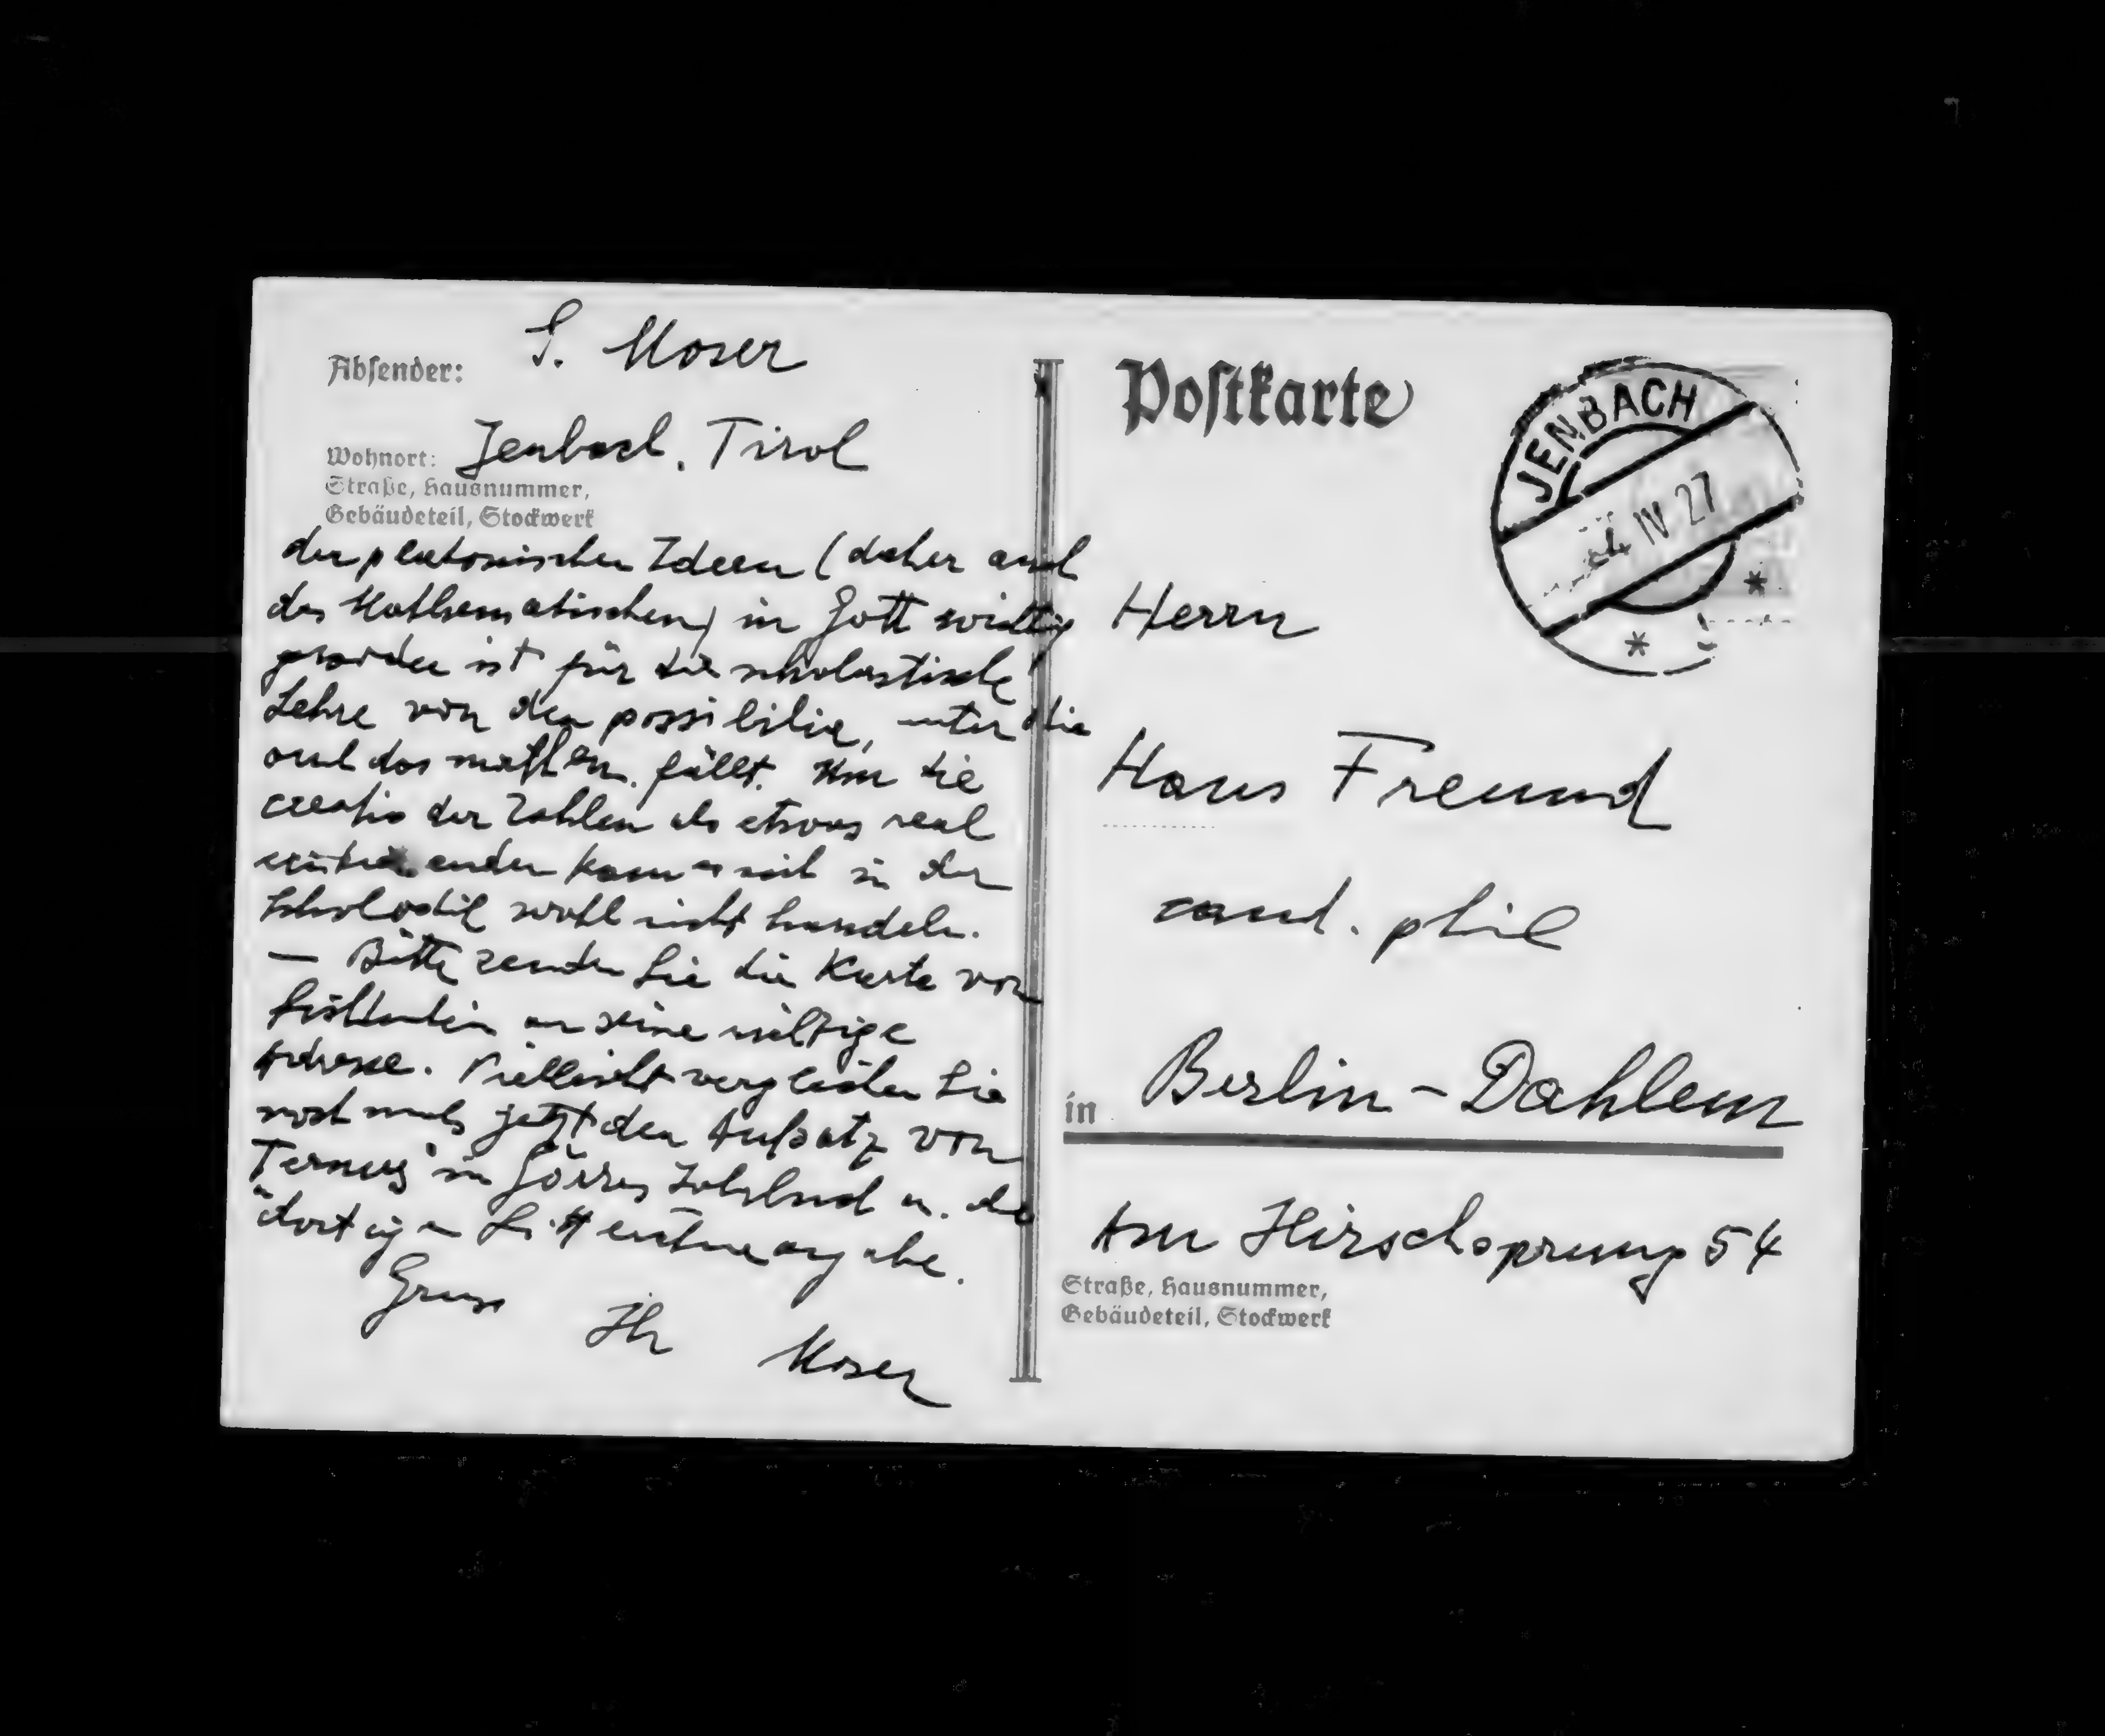 Absender: S. Moser
Wohnort: Jenbach. Tirol
Straße, Hausnummer,
Gebäudeteil, Stockwerk
der platonischen Ideen (daher auch
des Mathematischen) in Gott wichtig
geworden ist für die scholastische
Lehre von den possibilia, unter die
auch das mathem. fällt. Um die
creatio der Zahlen als etwas real
existierenden kann es sich in der
Scholastik wohl nicht handeln.
— Bitte senden Sie die Karte von
an seine
Adresse. Vielleicht vergleichen Sie
nochmals jetzt den Aufsatz von
Ternus in Görres Jahrbuch u. die
dortigen
Gruss Ihr Moser
Postkarte
JENBACH
IV 27
Herrn
Hans Freund
cand. phil
in Berlin-Dahlem
Am Hirschsprung 54
Straße, Hausnummer,
Gebäudeteil, Stockwerk